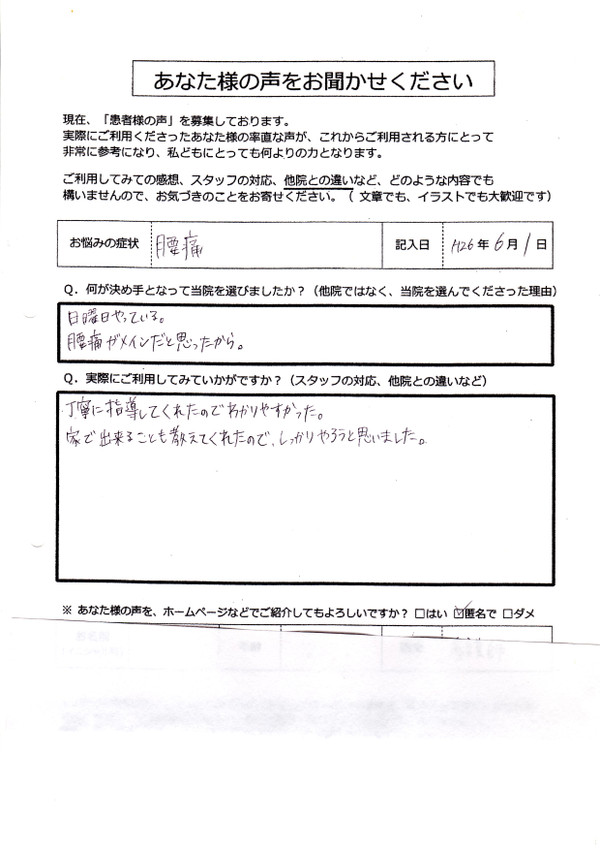 あなた様の声をお聞かせください
現在、「患者様の声」を募集しております。
実際にご利用くださったあなた様の率直な声が、これからご利用される方にとって
非常に参考になり、私どもにとっても何よりの力となります。
ご利用してみての感想、スタッフの対応、他院との違いなど、どのような内容でも
構いませんので、お気づきのことをお寄せください。（ 文章でも、イラストでも大歓迎です）
お悩みの症状 腰痛 記入日 H26年 6月 1日
Q．何が決め手となって当院を選びましたか？（他院ではなく、当院を選んでくださった理由）
日曜日やっている。
腰痛がメインだと思ったから。
Q．実際にご利用してみていかがですか？（スタッフの対応、他院との違いなど）
丁寧に指導してくれたのでわかりやすかった。
家で出来ることも教えてくれたので、しっかりやろうと思いました。
※ あなた様の声を、ホームページなどでご紹介してもよろしいですか？ □はい ☑匿名で □ダメ